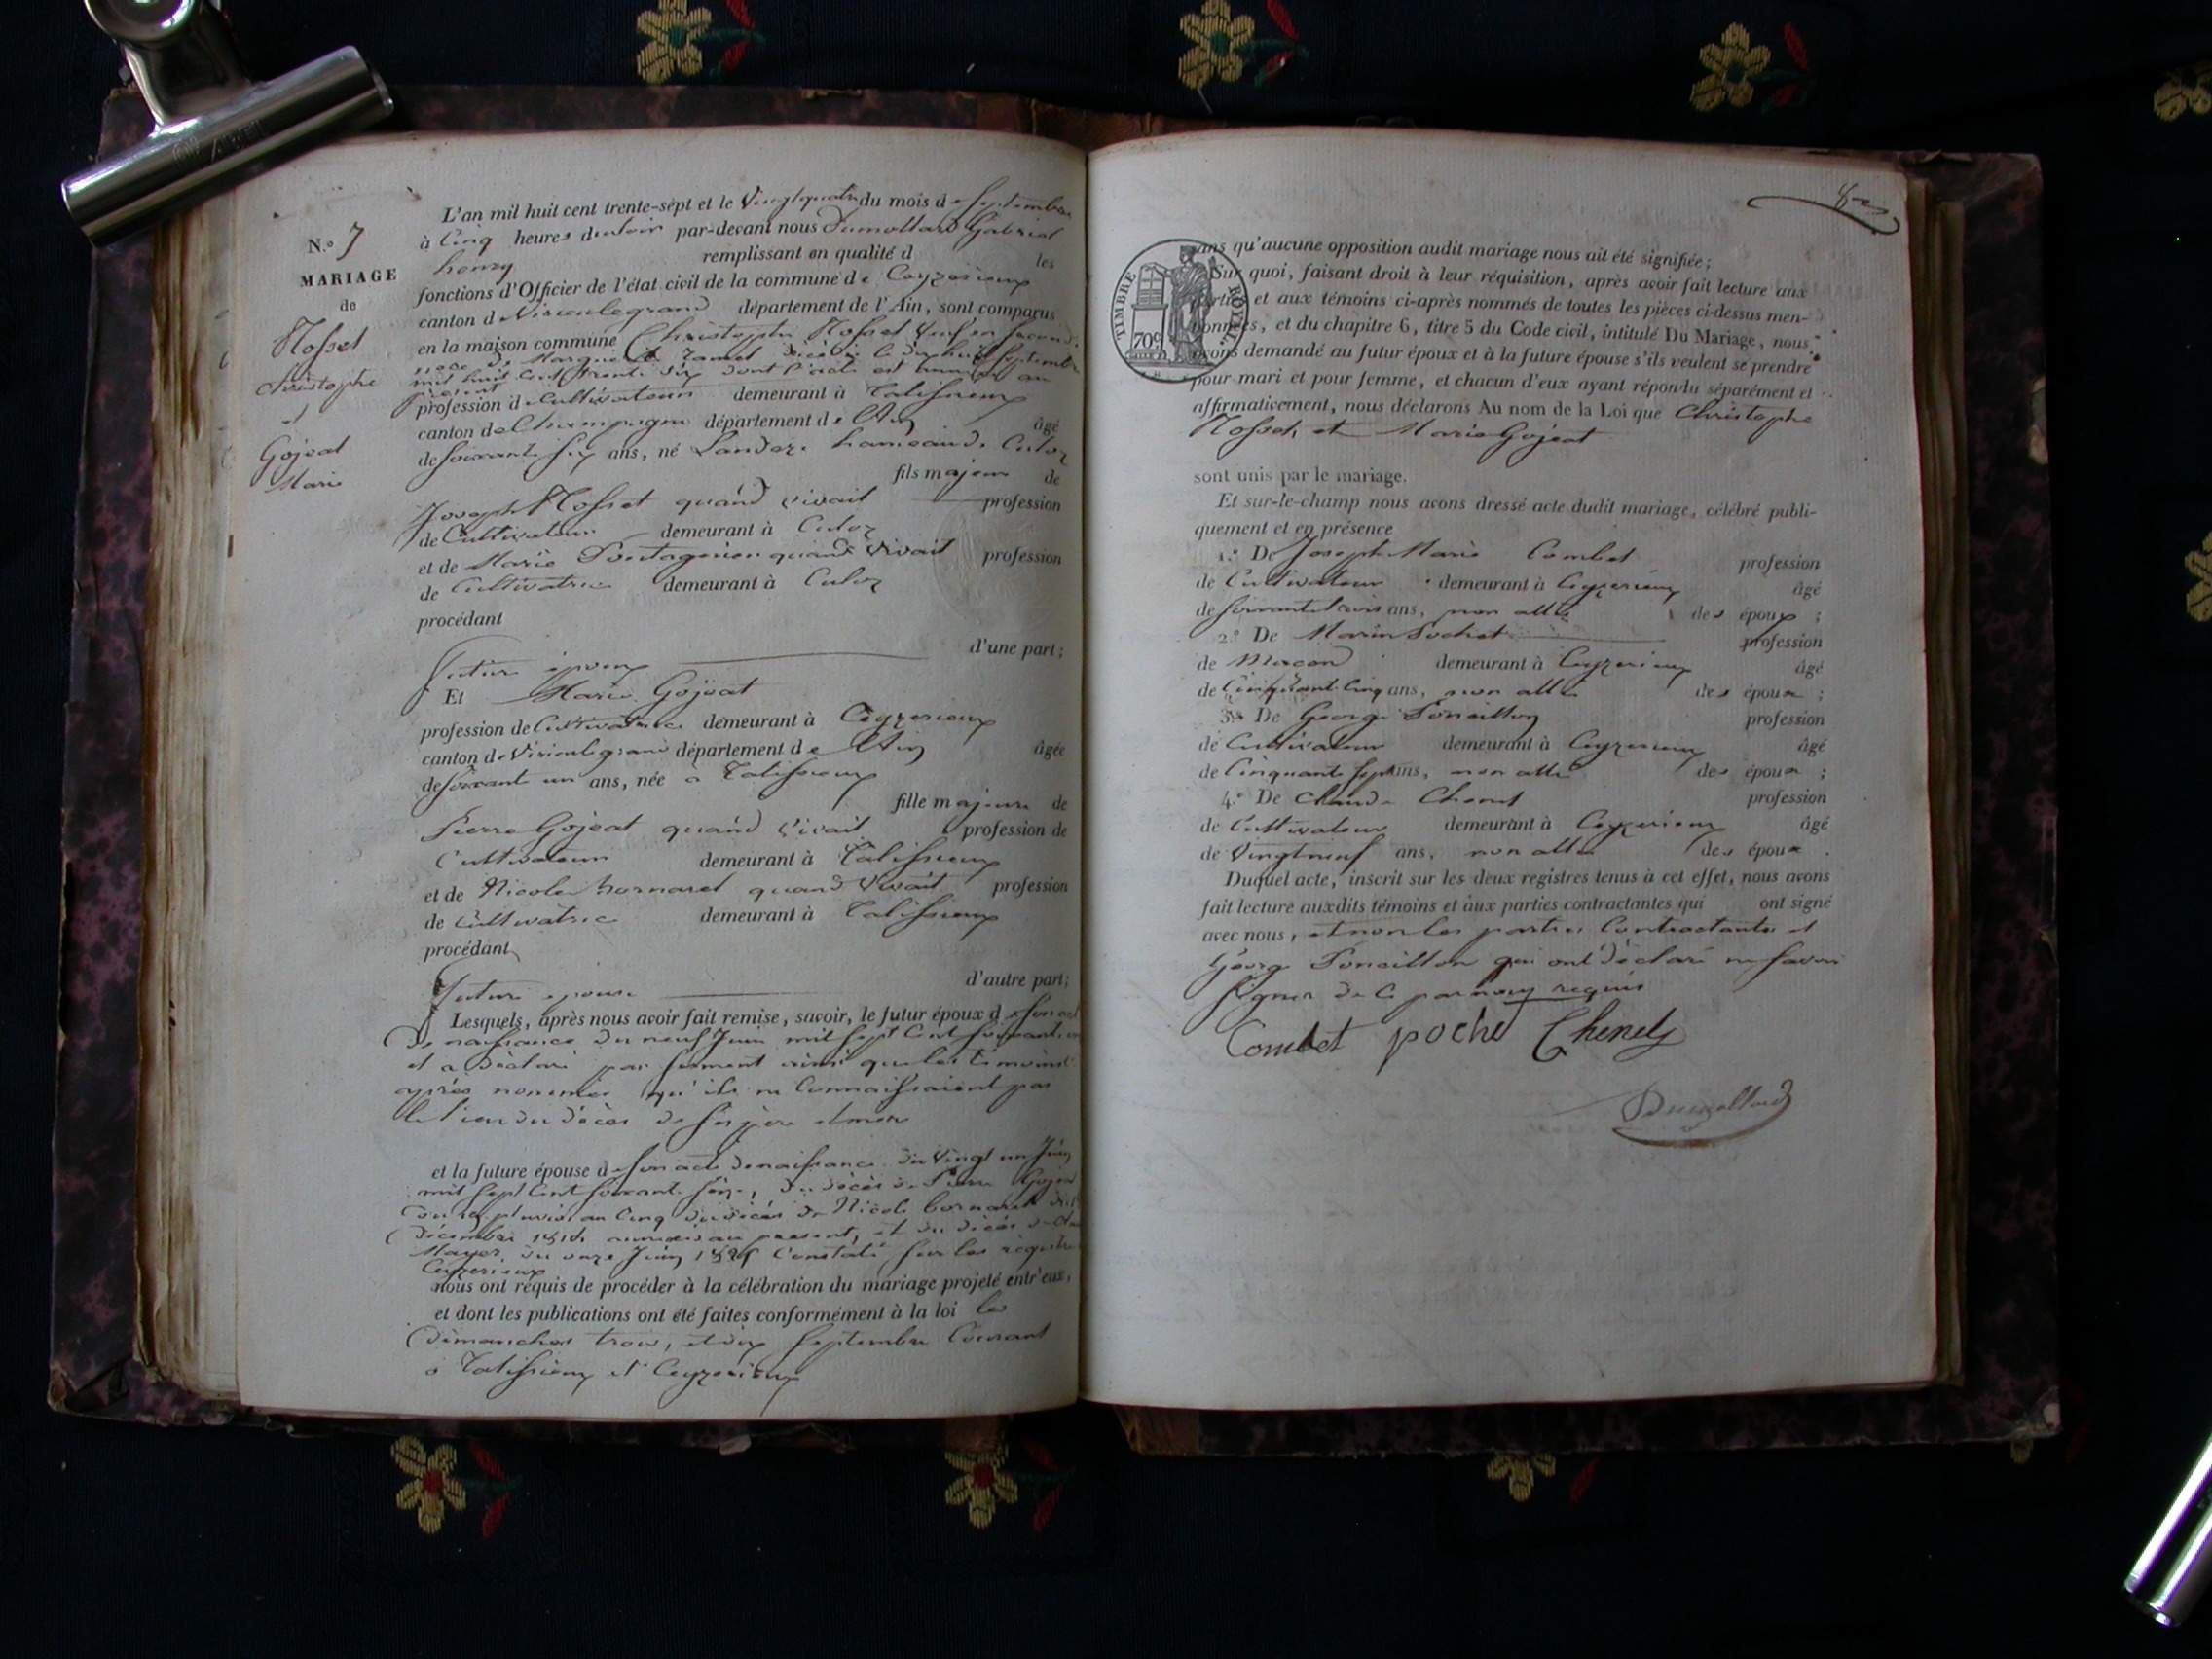 N.º 7
MARIAGE
de
Rosset
Christophe
et
Gojeat
Marie
L'an mil huit cent trente-sept et le Vingtquatre du mois de Septembre
à Cinq heures du soir par-devant nous Dumollard Gabriel
henry remplissant en qualité d les
fonctions d'Officier de l'état civil de la commune de Ceyzerieux
canton de Virieulegrand département de l'Ain, sont comparus
en la maison commune Christophe Rosset veuf en secondes
noces de Marguerite décédée le dixhuit Septembre
mil huit cent trente six dont l'acte est annexé au
présent
profession de Cultivateur demeurant à Talissieux
canton de Champagne département de l'Ain âgé
de soixante six ans, né Landaize hameau de Culoz
fils majeur de
Joseph Rosset quand vivait profession
de Cultivateur demeurant à Culoz
et de Marie quand vivait profession
de Cultivatrice demeurant à Culoz
procédant
d'une part;
futur époux
Et Marie Gojeat
profession de Cultivatrice demeurant à Ceyzerieux
canton de Virieulegrand département de l'Ain âgée
de soixante un ans, née a Talissieux
fille majeure de
Pierre Gojeat quand vivait profession de
Cultivateur demeurant à Talissieux
et de Nicole bornaret quand vivait profession
de Cultivatrice demeurant à Talissieux
procédant
d'autre part;
future épouse
Lesquels, après nous avoir fait remise, savoir, le futur époux de son acte
de naissance du neuf Juin mil sept cent soixante
et a déclaré par serment ainsi que les témoins
après nommés qu'ils ne connaissaient pas
le lieu du décès de ses père et mère
et la future épouse de son acte de naissance du vingt un Juin
mil sept cent soixante seize, du décès de Pierre Gojeat
pluviose an Cinq du décès de Nicole bornaret
décembre annexés au présent, et du décès
Mayer du onze Juin constaté sur les registres
Ceyzerieux
nous ont requis de procéder à la célébration du mariage projeté entr'eux,
et dont les publications ont été faites conformément à la loi les
dimanches trois, et dix Septembre Courant
à Talissieux et Ceyzerieux
TIMBRE ROYAL
70c
sans qu'aucune opposition audit mariage nous ait été signifiée;
Sur quoi, faisant droit à leur réquisition, après avoir fait lecture aux
parties et aux témoins ci-après nommés de toutes les pièces ci-dessus men-
tionnées, et du chapitre 6, titre 5 du Code civil, intitulé Du Mariage, nous
avons demandé au futur époux et à la future épouse s'ils veulent se prendre
pour mari et pour femme, et chacun d'eux ayant répondu séparément et
affirmativement, nous déclarons Au nom de la Loi que Christophe
Rosset, et Marie Gojeat
sont unis par le mariage.
Et sur-le-champ nous avons dressé acte dudit mariage, célébré publi-
quement et en présence
1.º De Joseph Marie Combet profession
de Cultivateur demeurant à Ceyzerieux âgé
de soixante trois ans, non allié des époux ;
2.º De Marin Pochet profession
de Maçon demeurant à Ceyzerieux âgé
de Cinquante Cinq ans, non allié des époux ;
3.º De George Poncillon profession
de Cultivateur demeurant à Ceyzerieux âgé
de Cinquante sept ans, non allié des époux ;
4.º De Claude Chenet profession
de Cultivateur demeurant à Ceyzerieux âgé
de Vingtneuf ans, non allié des époux .
Duquel acte, inscrit sur les deux registres tenus à cet effet, nous avons
fait lecture auxdits témoins et aux parties contractantes qui ont signé
avec nous, et non les parties Contractantes et
George Poncillon qui ont déclaré ne savoir
signer de ce par nous requis
Combet pochet Chenet
Dumollard